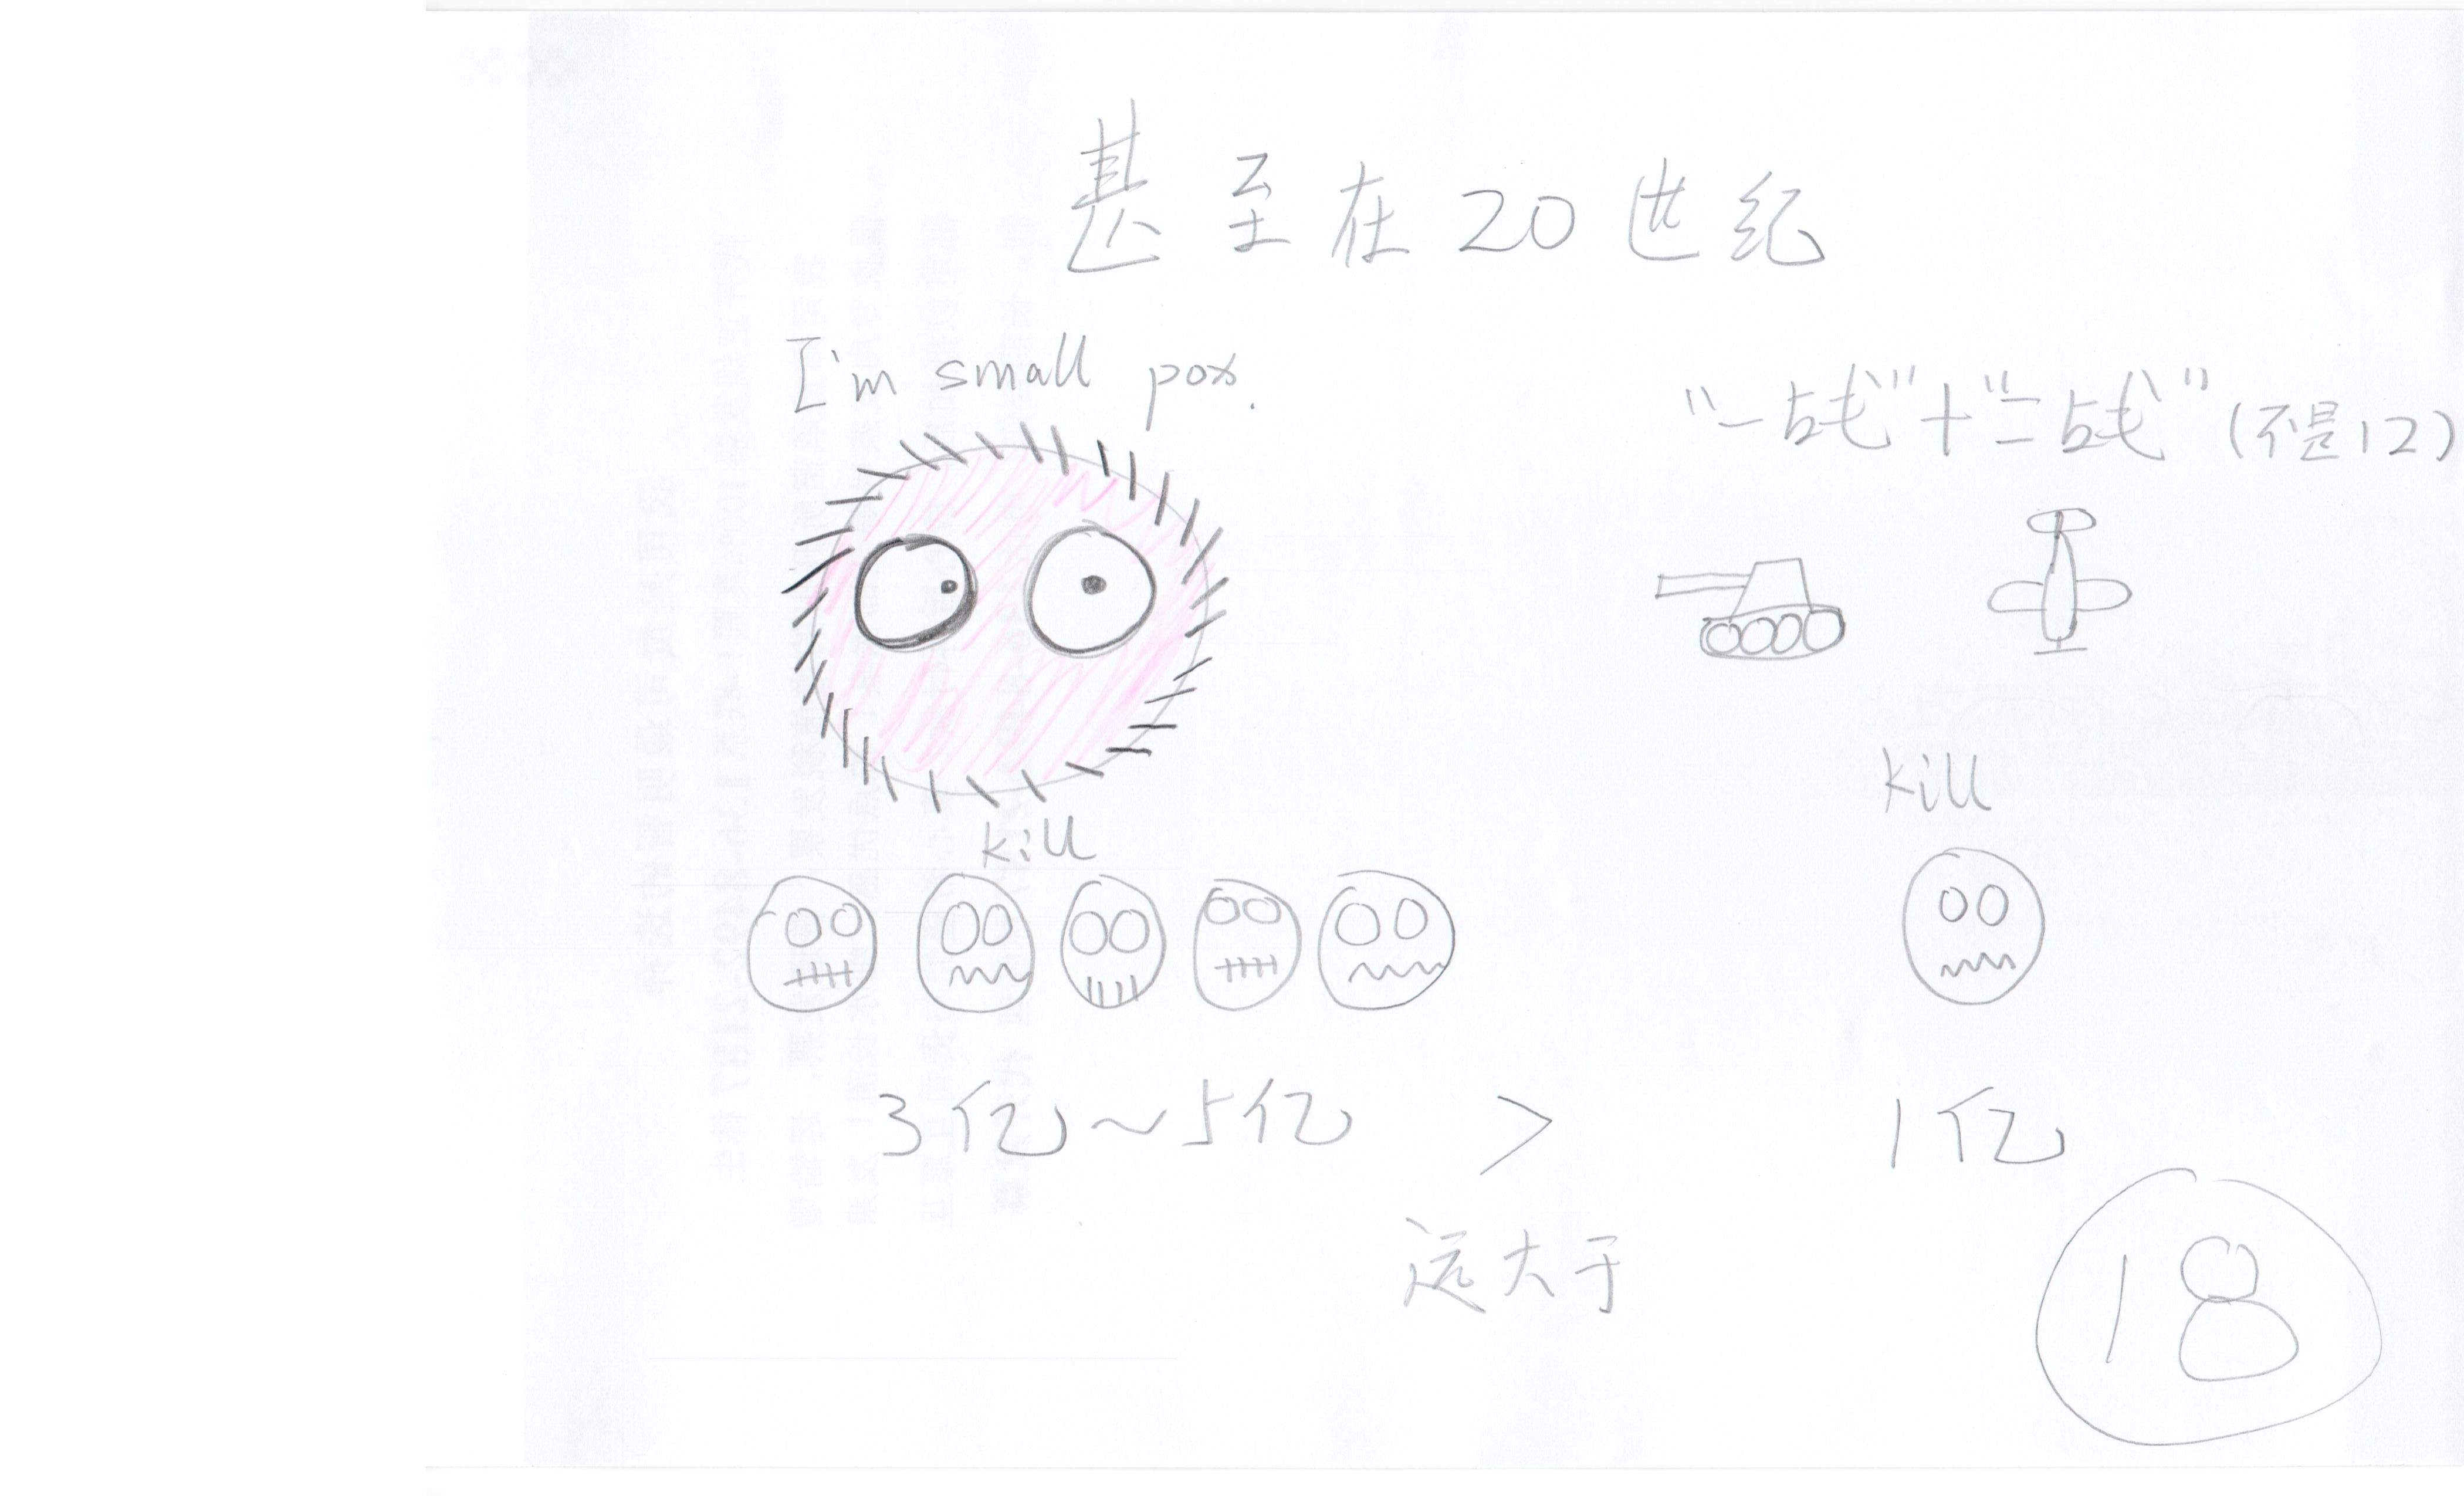 甚至在20世纪
I'm small pox.
"一战"+"二战"(不是12)
kill
kill
3亿~5亿 > 1亿
远大于
18